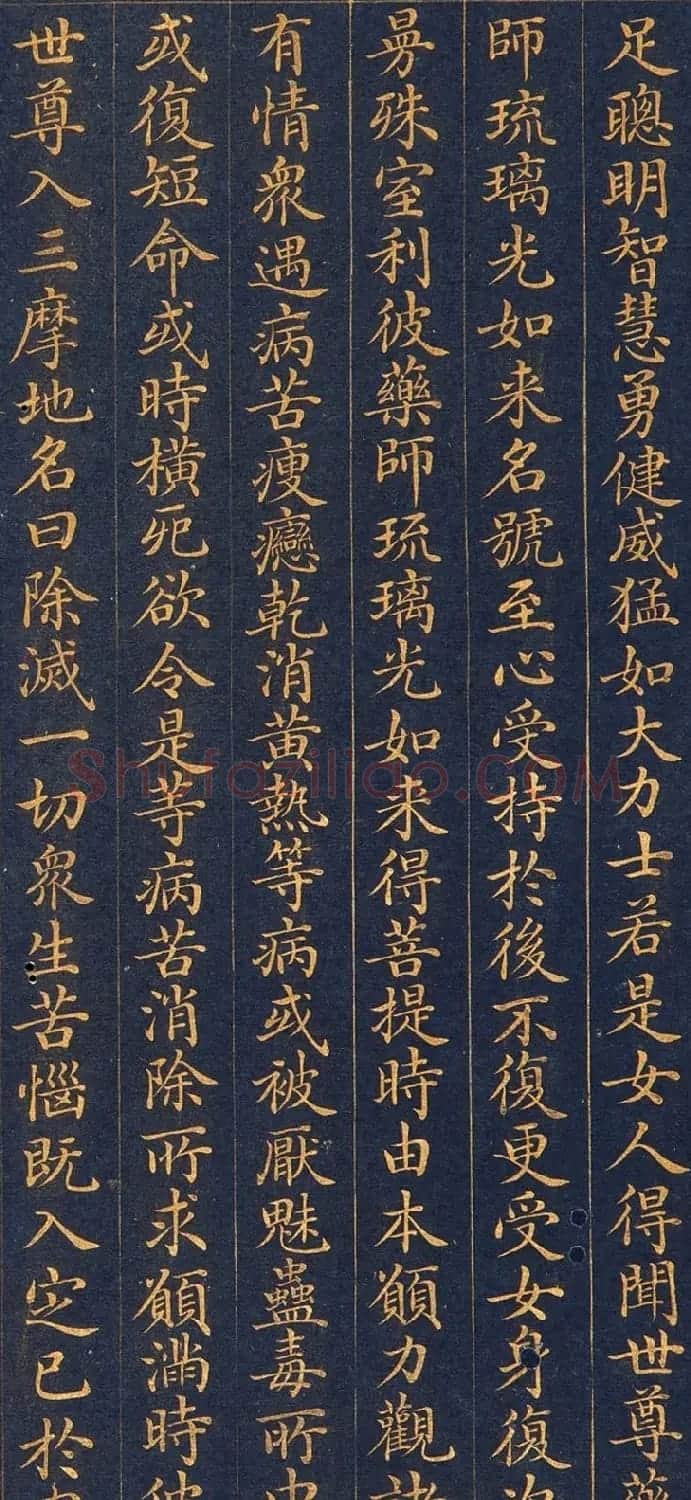 足聰明智慧勇健威猛如大力士若是女人得聞世尊藥
師琉璃光如来名號至心受持於後不復更受女身復次
曼殊室利彼藥師琉璃光如来得菩提時由本願力觀諸
有情衆遇病苦瘦癴乾消黄熱等病或被厭魅蠱毒所中
或復短命或時横死欲令是等病苦消除所求願滿時彼
世尊入三摩地名曰除滅一切衆生苦惱既入定已於
Shufaziliao.COM